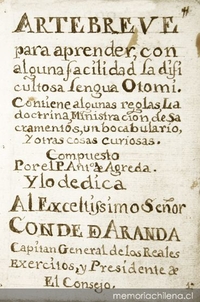 ARTE BREVE
para aprender, con
alguna facilidad la difi
cultosa lengua Otomi.
Contiene algunas reglas, La
doctrina, Ministracion de Sa
cramentos, un bocabulario,
y otras cosas curiosas.
Compuesto
Por el P. Antº. de Agreda.
Y lo dedica
Al Exceltissimo Señor
CONDE D ARANDA
Capitan General de los Reales
Exercitos, y Presidente de
El Consejo.
memoriachilena.cl